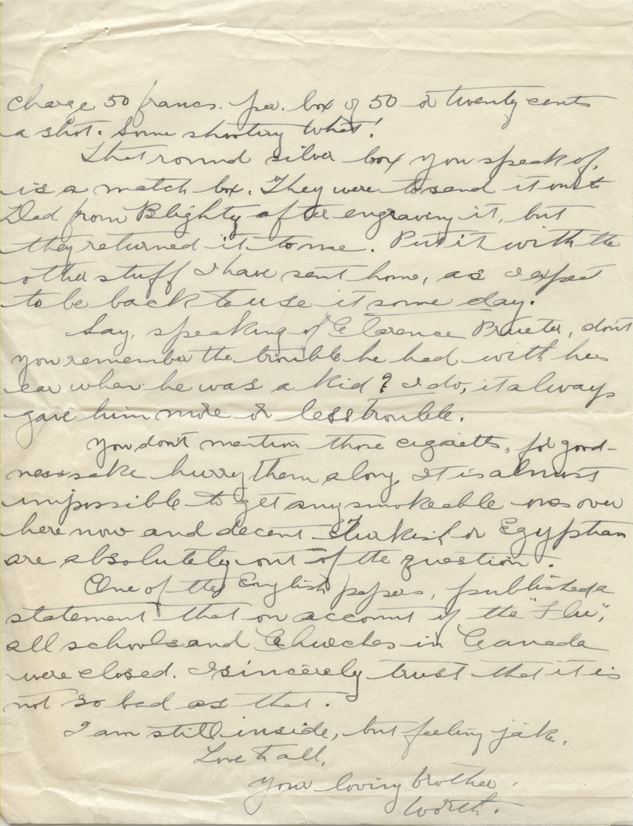 charge 50 francs. per. box of 50 or twenty cents
a shot. Some shooting what!
That round silver box you speak of,
is a match box. They were to send it on to
Dad from Blighty after engraving it, but
they returned it to me. Put it with the
other stuff I have sent home, as I expect
to be back to use it some day.
Say, speaking of Clarence Prueter, dont
you remember the trouble he had with his
ear when he was a kid? I do, it always
gave him more or less trouble.
You don't mention those cigaretts, for good-
ness sake hurry them along, It is almost
impossible to get any smokeable ones over
here now and decent Turkish or Egyptian
are absolutely out of the question.
One of the English papers, published a
statement that on account of the "Flu",
all schools and Churches in Canada
were closed. I sincerely trust that it is
not so bad as that.
I am still inside, but feeling jake.
Love to all,
Your loving brother.
Worth.